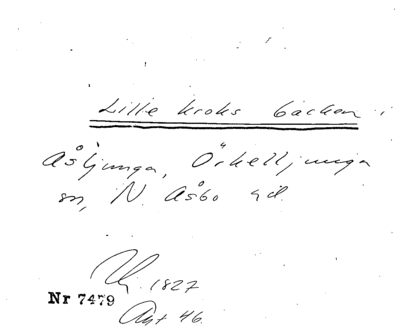 Lille kroks backen
Åsljunga, Örkelljunga
sn, N. Åsbo hd.
1827
Nr 7479
Akt 46.